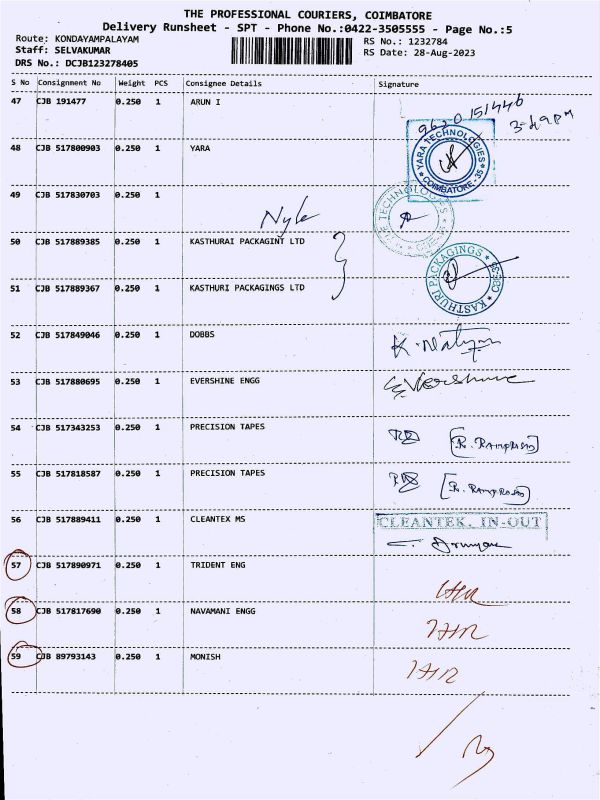 THE PROFESSIONAL COURIERS, COIMBATORE
Delivery Runsheet - SPT - Phone No.:0422-3505555 - Page No.:5
Route: KONDAYAMPALAYAM
Staff: SELVAKUMAR
DRS No.: DCJB123278405
RS No.: 1232784
RS Date: 28-Aug-2023
S No Consignment No Weight PCS Consignee Details Signature
47 CJB 191477 0.250 1 ARUN I
3-49PM
48 CJB 517800903 0.250 1 YARA
YARA TECHNOLOGIES COIMBATORE - 35
49 CJB 517830703 0.250 1
TECHNOLOGIES
50 CJB 517889385 0.250 1 KASTHURAI PACKAGINT LTD
51 CJB 517889367 0.250 1 KASTHURI PACKAGINGS LTD
KASTHURI PACKAGINGS CBE-35
52 CJB 517849046 0.250 1 DOBBS
53 CJB 517880695 0.250 1 EVERSHINE ENGG
54 CJB 517343253 0.250 1 PRECISION TAPES
[R. RAMPRASAD]
55 CJB 517818587 0.250 1 PRECISION TAPES
[R. RAMPRASAD]
56 CJB 517889411 0.250 1 CLEANTEX MS
CLEANTEK. IN-OUT
57 CJB 517890971 0.250 1 TRIDENT ENG
58 CJB 517817690 0.250 1 NAVAMANI ENGG
59 CJB 89793143 0.250 1 MONISH